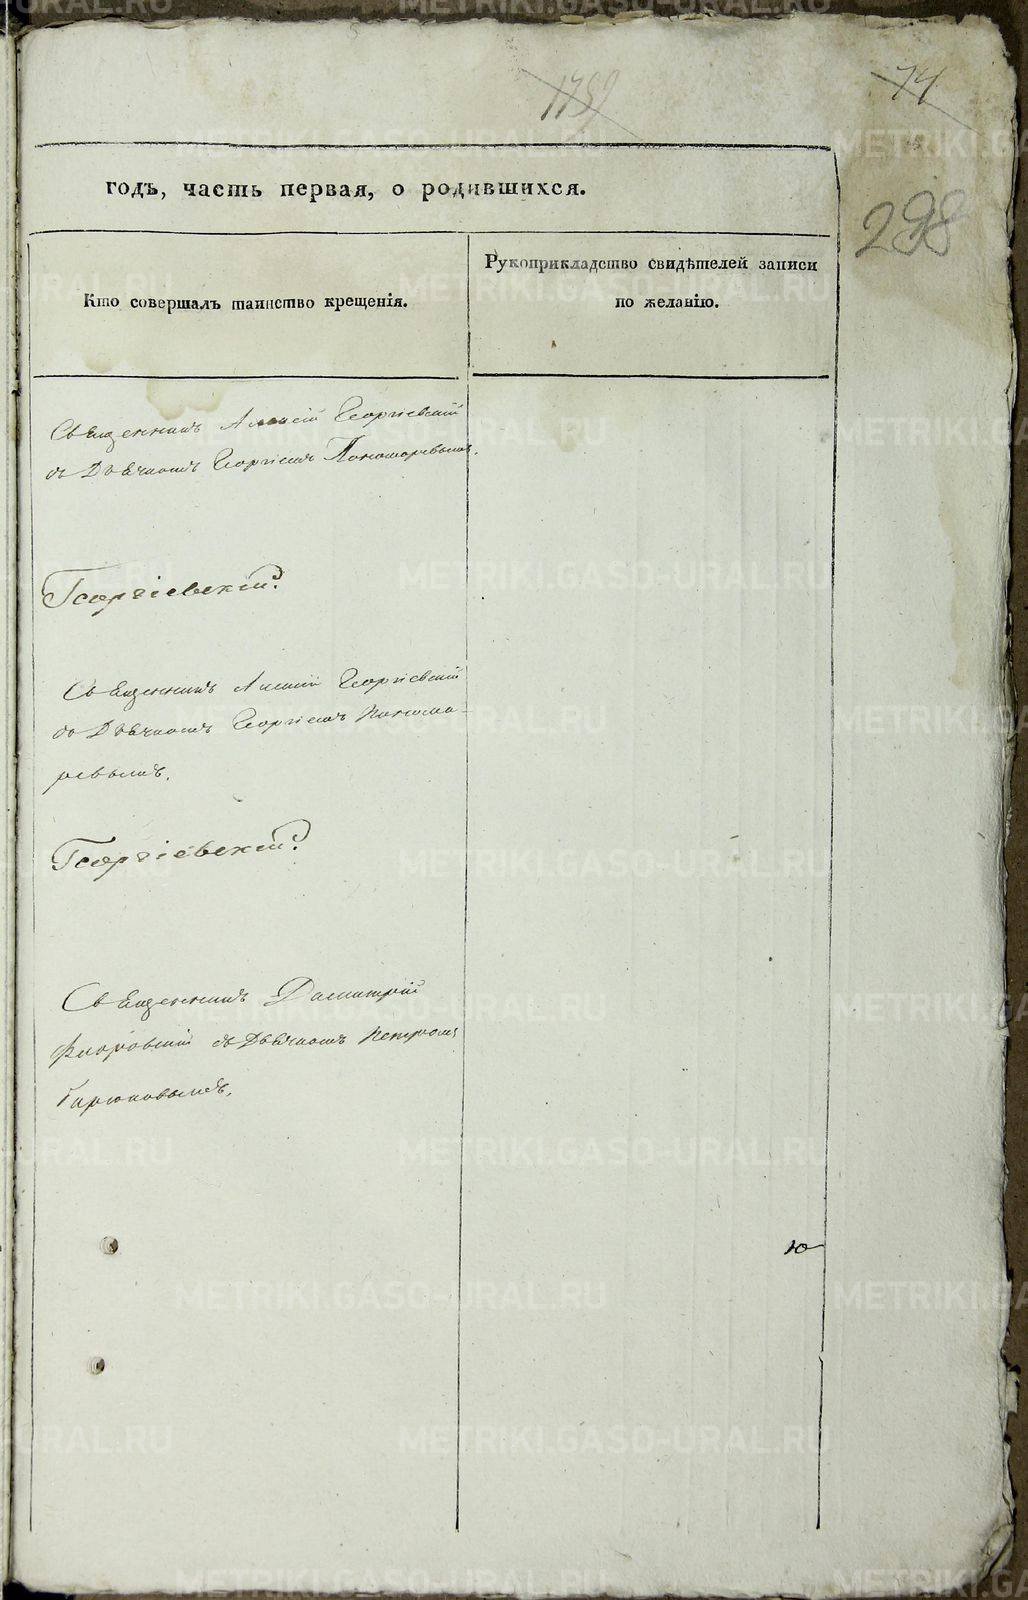 1759
74
298
годъ, часть первая, о родившихся.
Кто совершалъ таинство крещенія.
Рукоприкладство свидѣтелей записи
по желанію.
Священникъ Алексій Георгіевскій
съ Дьячкомъ Георгіемъ Пономаревымъ.
Георгіевскій.
Священникъ Алексій Георгіевскій
съ Дьячкомъ Георгіемъ Понома-
ревымъ.
Георгіевскій.
Священникъ Димитрій
Флоровскій съ Дьячкомъ Петромъ
ю
METRIKI.GASO-URAL.RU